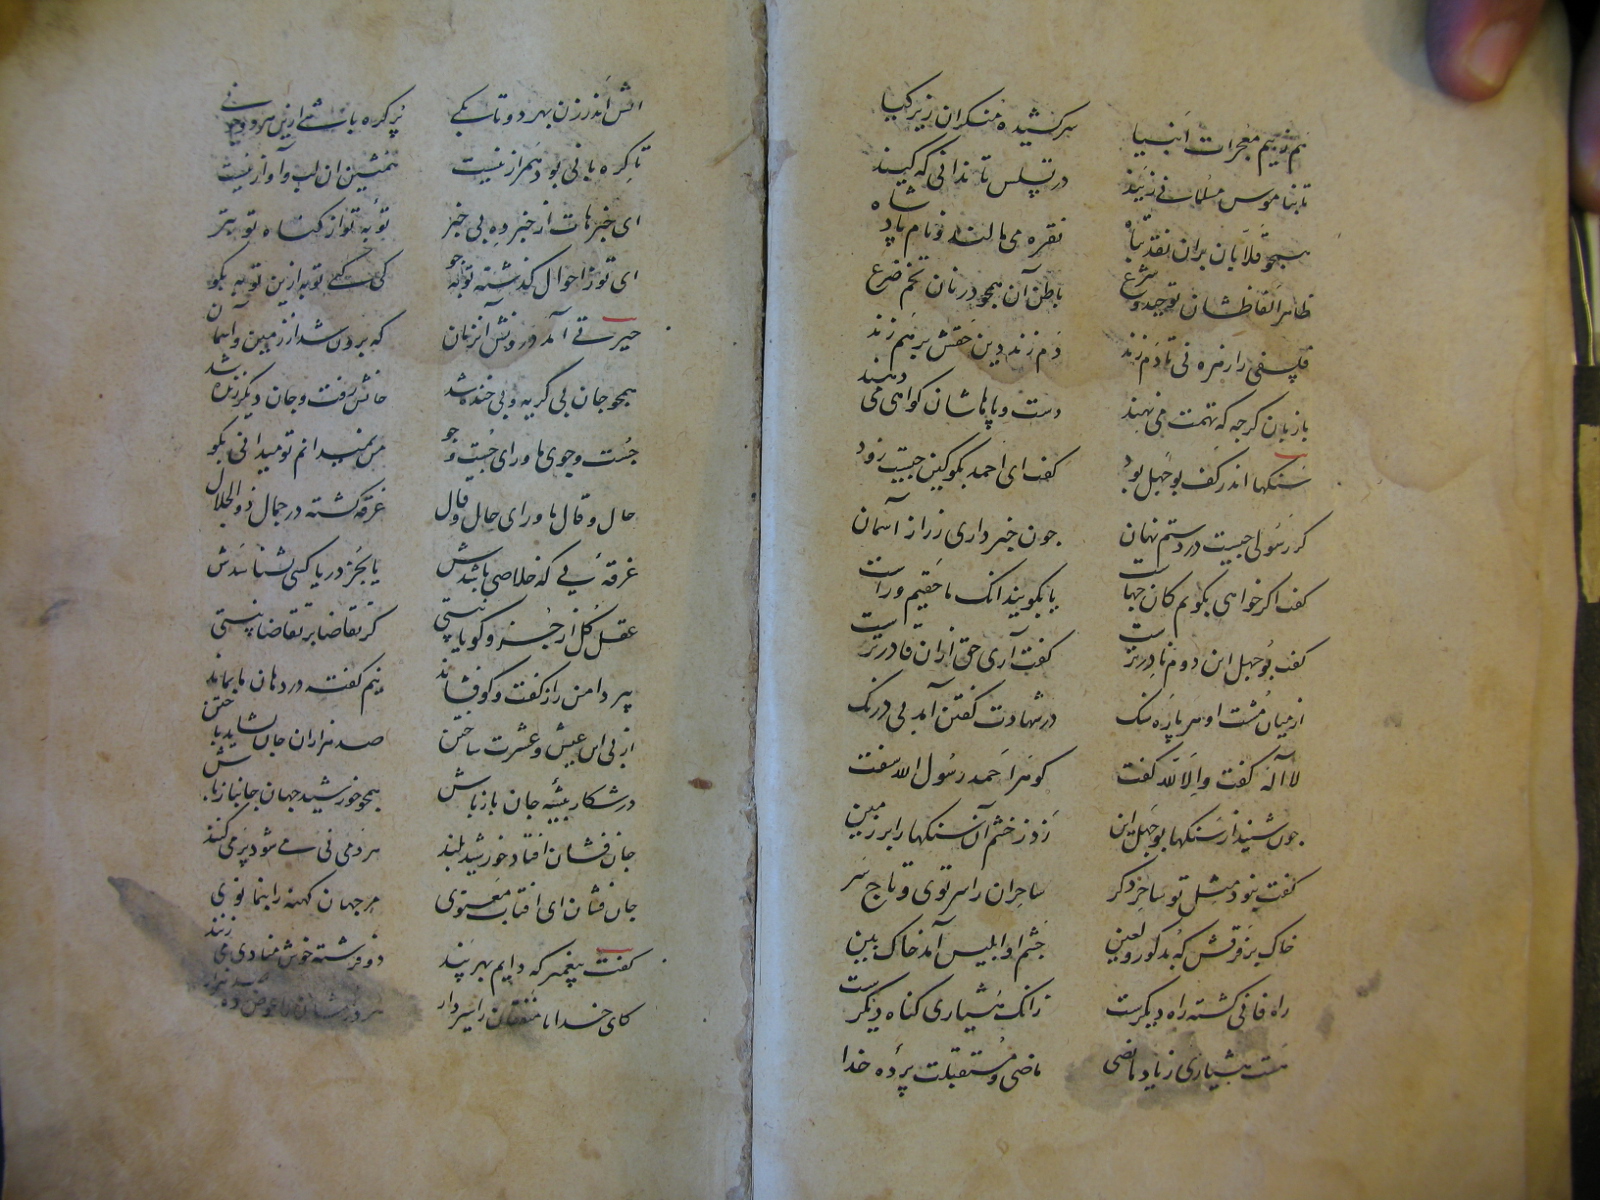 هم ز بیم معجزات انبیا سر کشیده منکران زیر کیا
تا بناموس مسلمانی زیند در تسلس تا ندانی که کیند
همچو قلابان بران نقد تباه نقره می مالند و نام پادشاه
ظاهر الفاظشان توحید و شرع باطن آن همچو در نان تخم ضرع
فلسفی را زهره نی تا دم زند دم زند دین حقش برهم زند
با زبان کرچه که تهمت می نهند دست و پاهاشان کواهی می دهند
سنکها اندر کف بوجهل بود کفت ای احمد بکو کین چیست زود
کر رسولی چیست در دستم نهان چون خبر داری ز راز آسمان
کفت اکر خواهی بکویم کان چهاست یا بکویند انک ما حقیم و راست
کفت بوجهل این دوم نادرترست کفت آری حق ازان قادرترست
از میان مشت او هر پاره سنک در شهادت کفتن آمد بی درنک
لا اله کفت و الا الله کفت کوهر احمد رسول الله سفت
چون شنید از سنکها بوجهل این زد ز خشم آن سنکها را بر زمین
کفت نبود مثل تو ساحر دکر ساحران را سر توی و تاج سر
خاک بر فرقش که بد کور و لعین چشم او ابلیس آمد خاک بین
راه فانی کشته راه دیکرست زانک هشیاری کناه دیکرست
هست هشیاری ز یاد ما مضی ماضی و مستقبلت پرده خدا
آتش اندر زن بهر دو تا بکی پر کره باشی ازین هر دو چو نی
تا کره با نی بود همراز نیست همنشین آن لب و آواز نیست
ای خبرهات از خبر ده بی خبر توبه تو از کناه تو بتر
ای تو از احوال کذشته توبه جو کی کنی توبه ازین توبه بکو
حیرتی آمد درونش آن زمان که برون شد از زمین و آسمان
همچو جان بی کریه و بی خنده شد جانش رفت و جان دیکر زنده شد
جست و جوی ها ورای جست و جو من نمیدانم تو میدانی بکو
حال و قال ها ورای حال و قال غرقه کشته در جمال ذو الجلال
غرقه ئی که خلاصی باشدش یا بجز دریا کسی بشناسدش
عقل کل از جزو کویا نیستی کر تقاضا بر تقاضا نیستی
پیر دامن را ز کفت و کو فشاند نیم کفته در دهان ما بماند
از پی این عیش و عشرت ساختن صد هزاران جان بشاید باختن
در شکار بیشه جان باز باش همچو خورشید جهان جانباز باش
جان فشان افتاد خورشید بلند هر دمی نی می شود پر می کنند
جان فشان ای افتاب معنوی مر جهان کهنه را بنما نوی
کفت پیغمبر که دایم بهر پند دو فرشته خوش منادی می زنند
کای خدایا منفقان را سیر دار هر درمشان را عوض ده صد هزار